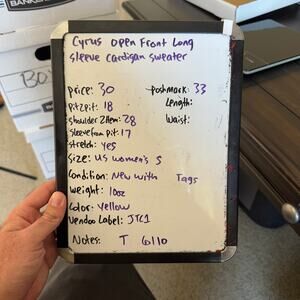 BANKERS
BOX
Cyrus open Front Long
sleeve cardigan sweater
price: 30 Poshmark: 33
pit2pit: 18 Length:
shoulder 2 Hem: 28 Waist:
sleeve from pit: 17
stretch: yes
size: US women's S
Condition: New with Tags
weight: 10oz
Color: Yellow
Vendoo Label: JTC1
Notes: T 6/10